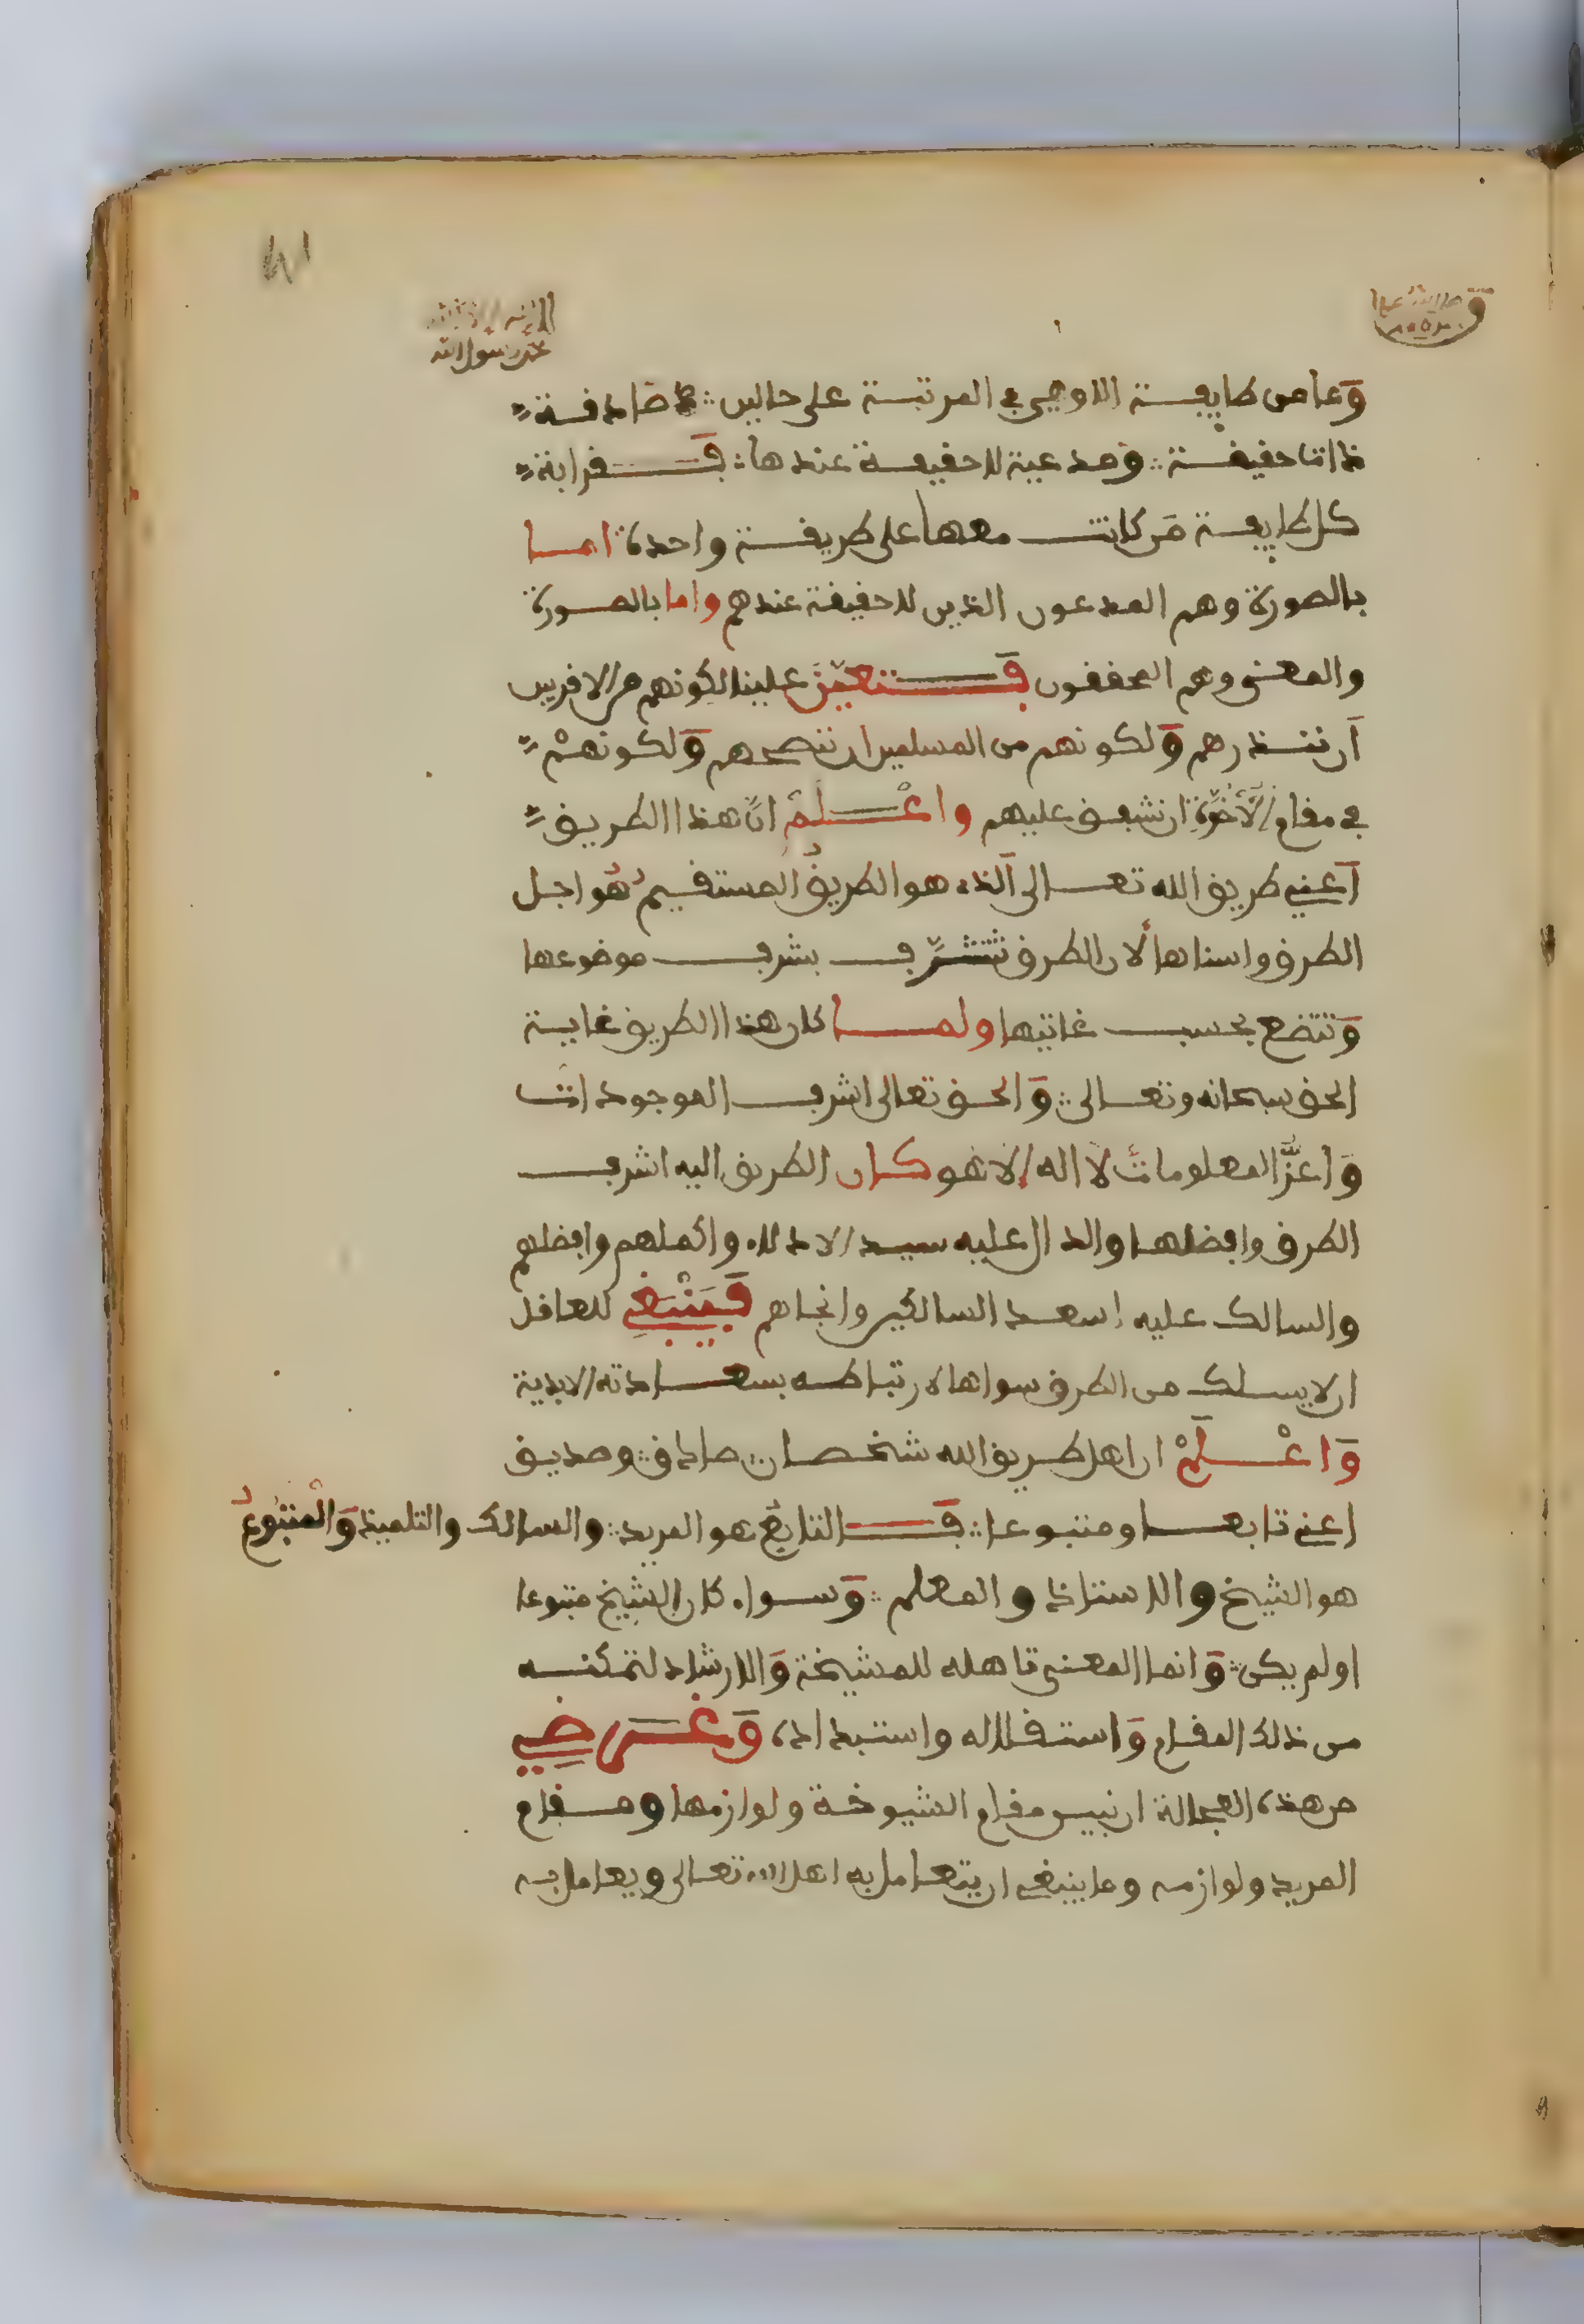 محمد رسول الله
وَما من طايفة الا وهي في المرتبة على حالين صادفة
ذات حقيقة ومدعية لا حقيقة عندها فقرابة
كل طايفة من كانت معها على طريقة واحدة اما
بالصورة وهم المدعون الذين لا حقيقة عندهم واما بالصورة
والمعنى وهم المحققون فتعيّن علينا لكونهم من الاقربين
أن ننذرهم وَلكونهم من المسلمين ان ننصحهم وَلكونهمْ
في مقام الأخوّة ان نشفق عليهم واعْلمْ انّ هذا الطريق
أعني طريق الله تعالى الذي هو الطريقُ المستقيم هُو اجل
الطرق واسناها لأن الطرق تتشرّف بشرف موضوعها
وَتتضع بحسب غايتها ولما كان هذا الطريق غايته
الحق سبحانه وتعالى وَالحق تعالى اشرف الموجودات
وَاعزُّ المعلومات لا اله الا هو كان الطريق اليه اشرف
الطرق وافضلها والدال عليه سيد الادلاء واكملهم وافضلهم
والسالك عليه اسعد السالكين وانجاهم فَيَنْبَغِي للعاقل
ان لا يسلك من الطرق سواها لارتباطه بسعادته الابدية
وَاعْلَمْ ان اهل طريق الله شخصان صادق وصديق
اعني تابعا ومتبوعا فَالتابعُ هو المريد والسالك والتلميذ وَالْمتبُوعُ
هو الشيخ والاستاذ والمعلم وَسواء كان الشيخ متبوعا
او لم يكن وَانما المعنى تاهله للمشيخة وَالارشاد لتمكنه
من ذلك المقام وَاستقلاله واستبداده وَغَرضِي
من هذه العجالة ان نبين مقام الشيوخة ولوازمها ومقام
المريد ولوازمه وما ينبغي ان يتعامل به اهل الله تعالى ويعامل به